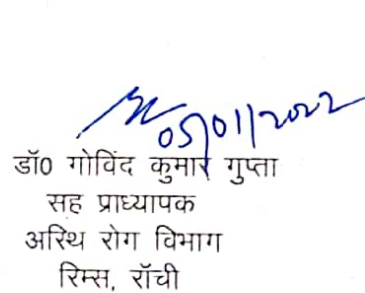 05/01/2022
डॉ0 गोविंद कुमार गुप्ता
सह प्राध्यापक
अस्थि रोग विभाग
रिम्स, राँची